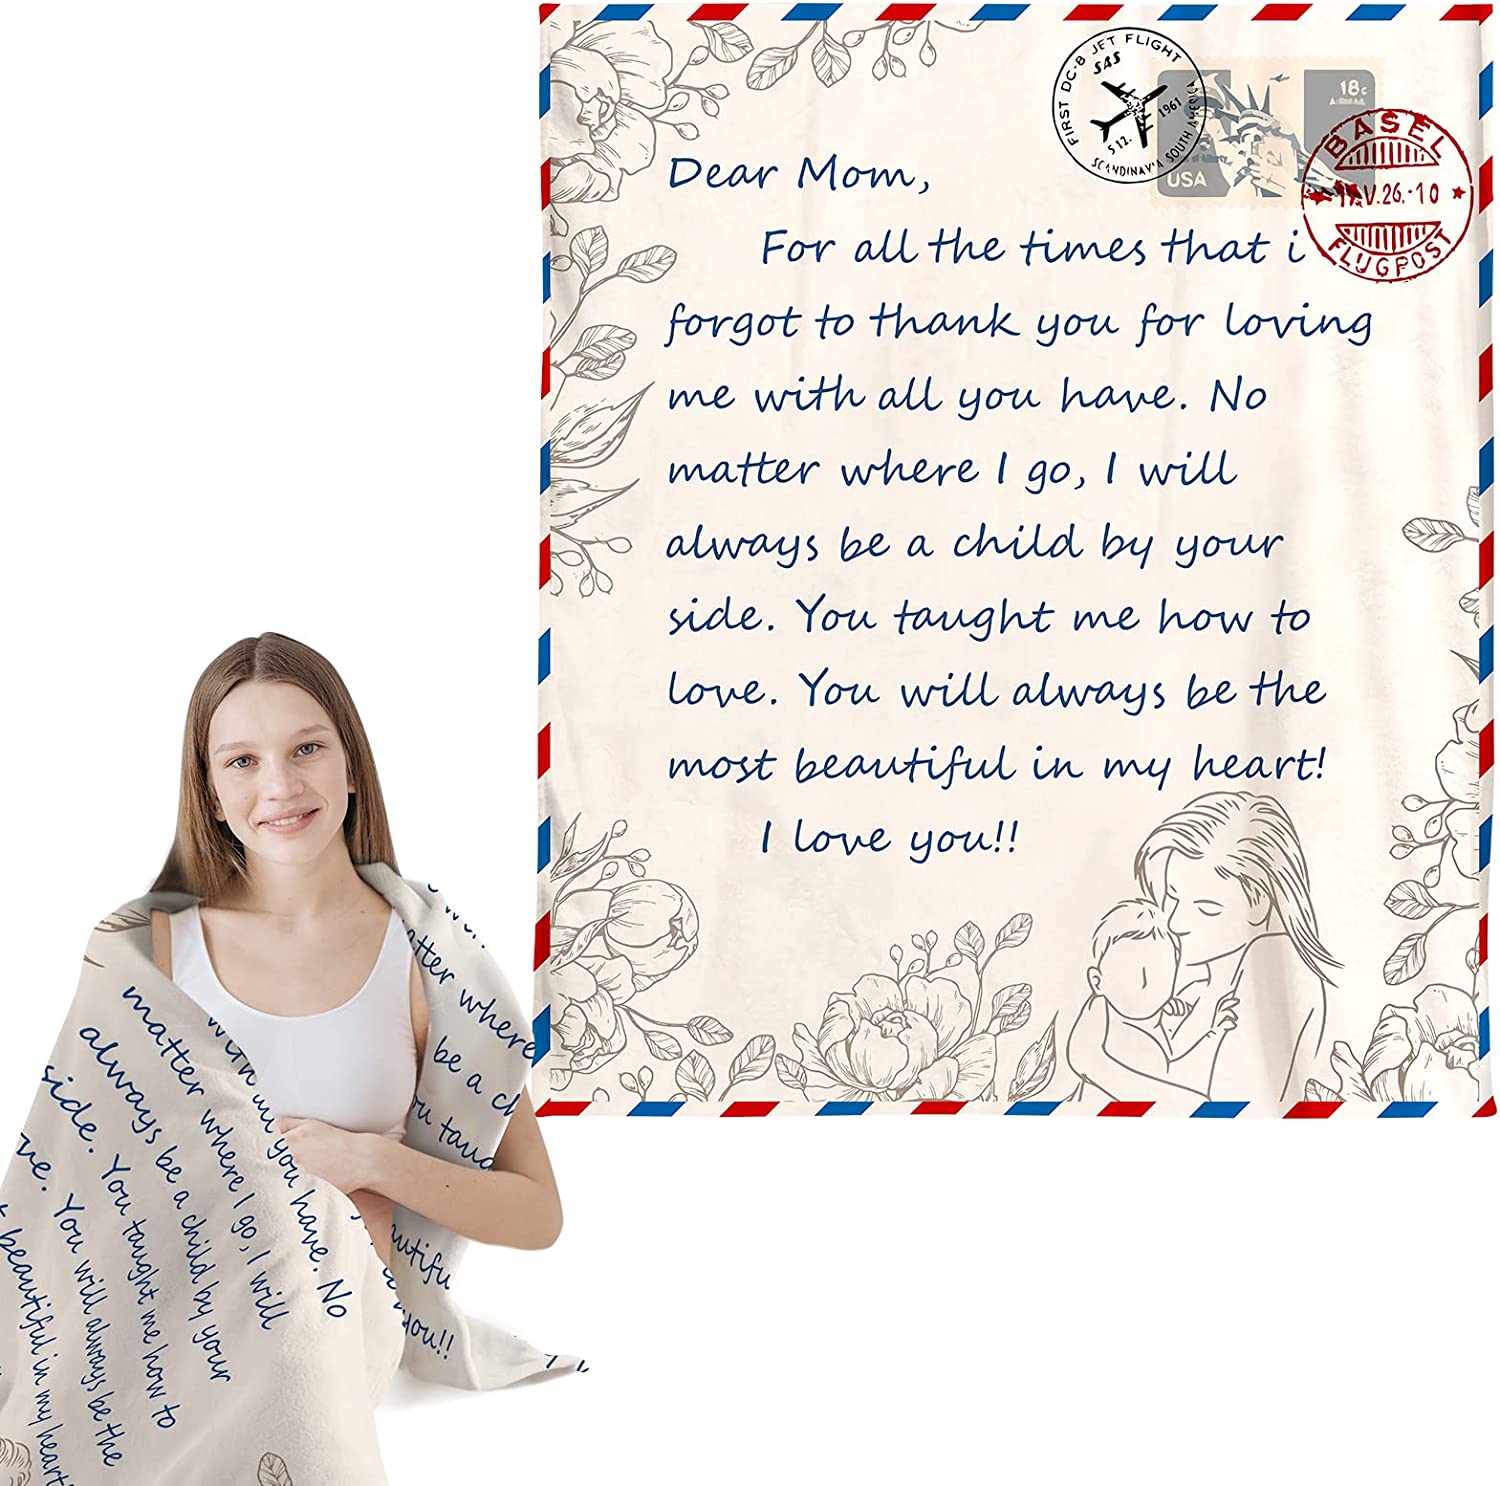 FIRST DC-8 JET FLIGHT
SAS
5 12. 1961
SCANDINAVIA SOUTH AMERICA
18c
USA
BASEL
V.26.-10
FLUGPOST
Dear Mom,
For all the times that i
forgot to thank you for loving
me with all you have. No
matter where I go, I will
always be a child by your
side. You taught me how to
love. You will always be the
most beautiful in my heart!
I love you!!
with
matter where
be a ch
you taug
beautifu
you!!
with all you have. No
matter where I go, I will
always be a child by your
side. You taught me how to
love. You will always be the
beautiful in my heart